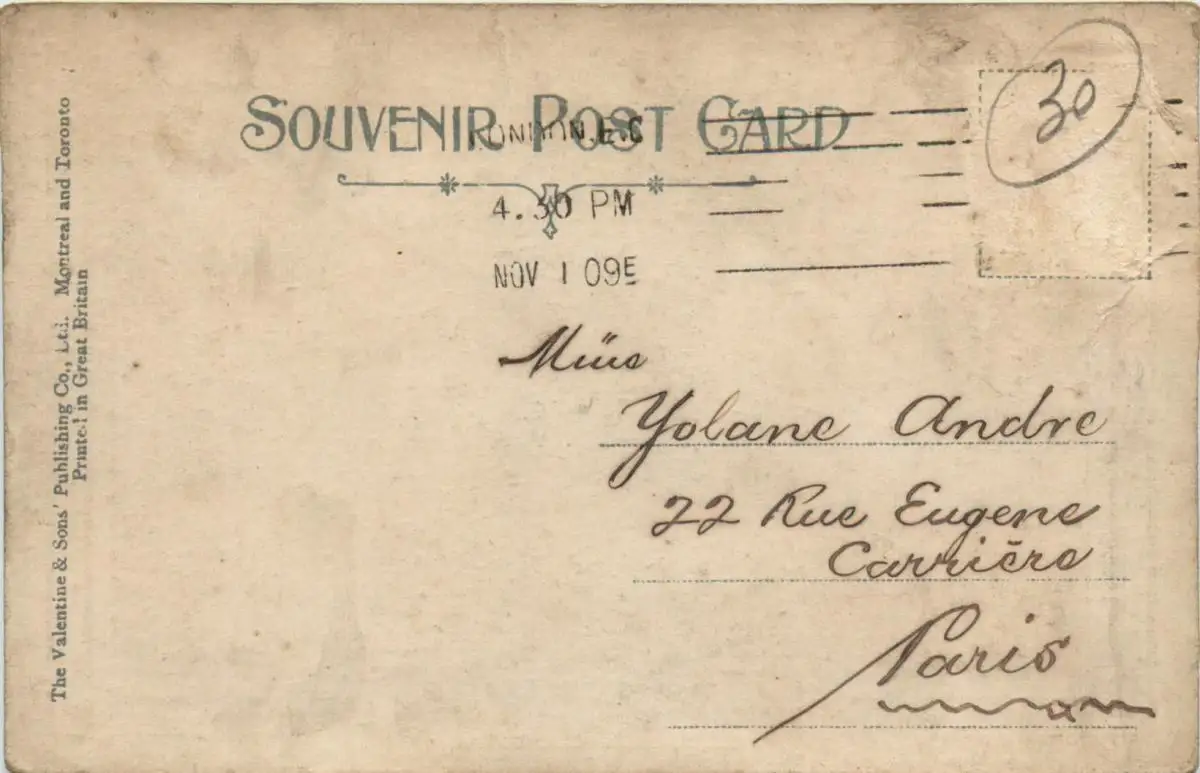 SOUVENIR POST CARD
LONDON.E.C
4.30 PM
NOV 1 09E
30
Yolane Andre
22 Rue Eugene
Carrière
Paris
The Valentine & Sons' Publishing Co., Ltd. Montreal and Toronto
Printed in Great Britain